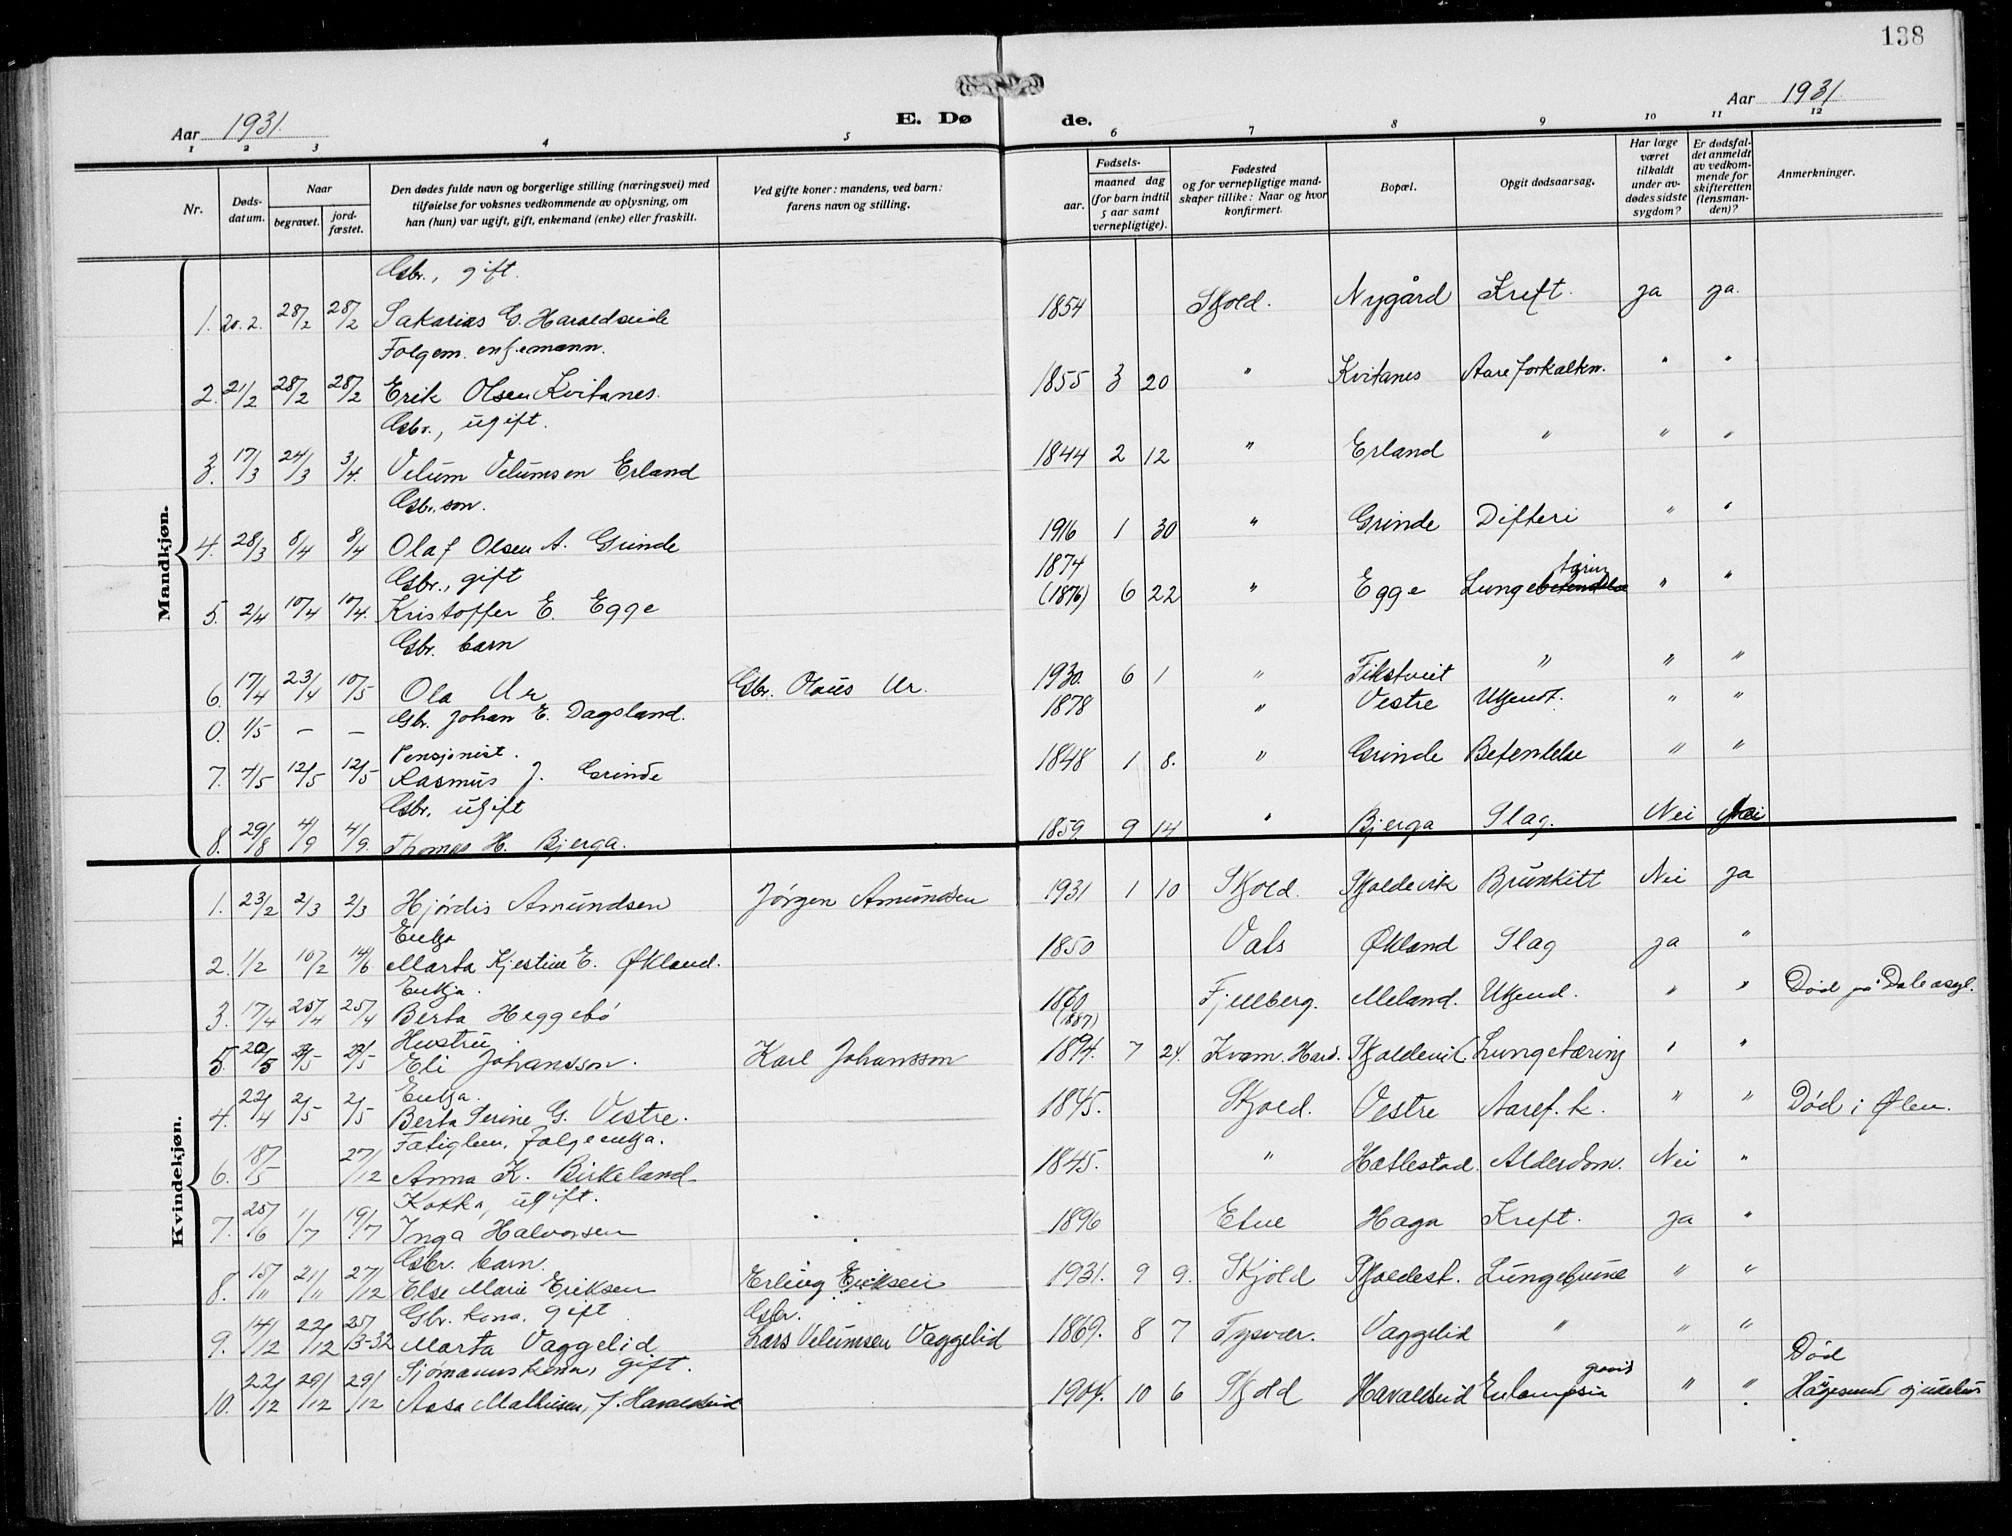 138
Aar 1931.
Aar 1931.
E. Dø
de.
1 2 3 4 5 6 7 8 9 10 11 12
Nr.
Døds-
datum.
Naar
begravet.
jord-
fæstet.
Den dødes fulde navn og borgerlige stilling (næringsvei) med
tilføielse for voksnes vedkommende av oplysning, om
han (hun) var ugift, gift, enkemand (enke) eller fraskilt.
Ved gifte koner: mandens, ved barn:
farens navn og stilling.
Fødsels-
aar.
maaned dag
(for barn indtil
5 aar samt
vernepligtige).
Fødested
og for vernepligtige mand-
skaper tillike: Naar og hvor
konfirmert.
Bopæl.
Opgit dødsaarsag.
Har læge
været
tilkaldt
under av-
dødes sidste
sygdom?
Er dødsfal-
det anmeldt
av vedkom-
mende for
skifteretten
(lensman-
den)?
Anmerkninger.
Mandkjøn.
Gbr., gift.
1. 20.2. 28/2 28/2 Sakarias G. Haraldseide 1854 Skjold. Nygård Kreft. ja ja.
Folgem. enkemann.
2. 21/2 28/2 28/2 Erik Olsen Kvitanes. 1855 3 20 " Kvitanes Aareforkalkn. " "
Gbr., ugift.
3. 17/3 24/3 3/4. Velum Velumsen Erland 1844 2 12 " Erland " " "
Gbr. son.
4. 28/3 8/4 8/4 Olaf Olsen A. Grinde 1916 1 30 " Grinde Difteri " "
Gbr., gift 1874
5. 2/4 10/4 10/4. Kristoffer E. Egge (1876) 6 22 " Egge Lungebetendelse " "
Gbr. barn
6. 17/4 23/4 10/5 Ola Ur Gbr. Olaus Ur. 1930. 6 1 " Fikstveit " " "
0. 1/5 — — Gbr. Johan E. Dagsland. 1878 " Vestre Ukjendt. " "
Pensjonist.
7. 4/5 12/5 12/5 Rasmus J. Grinde 1848 1 8. " Grinde Betentelse " "
Gbr. ugift
8. 29/8 4/9 4/9. Thomas H. Bjerga. 1859. 9 14 " Bjerga Slag. Nei Nei
Kvindekjøn.
1. 23/2 2/3 2/3 Hjørdis Amundsen Jørgen Amundsen 1931 1 10 Skjold. Skjoldevik Brunkitt Nei ja
Enkja
2. 1/2 10/2 14/6 Marta Kjestine E. Økland. 1850 Vats Økland Slag ja "
Enkja.
3. 17/4 25/4 25/4 Berta Heggebø 1860 Fjellberg. Meland. Ukjend. " " Død på Dale asyl.
(1887)
Hustru
5. 20/5 29/5 29/5 Eli Johansson. Karl Johansson 1894. 7 24. Kvam. Hard. Skjoldevik Lungetæring " "
Enkja.
4. 22/4 2/5 2/5 Berta Serine G. Vestre. 1845. Skjold. Vestre Aaref. k. " " Død i Ølen.
Fatiglem, folgeenkja.
6. 18/5 27/12 Anna K. Birkeland 1845. " Hatlestad. Alderdom. Nei "
Kokka, ugift.
7. 25/6 1/7 19/7 Inga Halvorsen 1896 Etne Haga Kreft. ja "
Gbr. barn.
8. 15/11 21/11 27/12 Else Marie Eriksen Erling Eriksen 1931. 9 9. Skjold Skjoldest. Lungebetne " "
Gbr. kona, gift Gbr.
9. 14/12 22/12 25/3-32 Marta Vaggelid Lars Velumsen Vaggelid 1869. 8 7 Tysvær. Vaggelid " " "
Sjømannskona, gift. Død
10. 22/12 29/12 29/12 Aasa Mathiesen, f. Haraldseid 1904. 10 6 Skjold Haraldseid Eclampsia " " Haugesund sjukehus